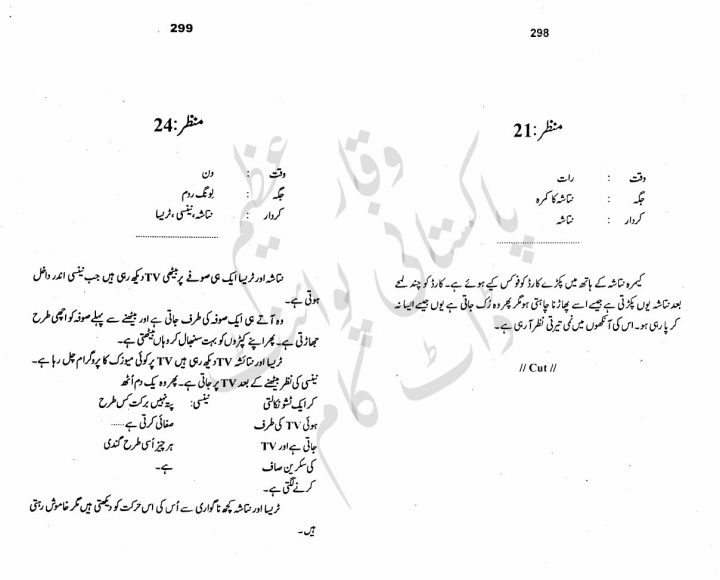 298
منظر:21
وقت : رات
جگہ : نتاشہ کا کمرہ
کردار : نتاشہ
کیمرہ نتاشہ کے ہاتھ میں پکڑے کارڈ کو فوکس کیے ہوئے ہے۔ کارڈ کو چند لمحے
بعد نتاشہ یوں پکڑتی ہے جیسے اسے پھاڑنا چاہتی ہو مگر پھر وہ رُک جاتی ہے یوں جیسے ایسا نہ
کر پا رہی ہو۔ اس کی آنکھوں میں نمی تیرتی نظر آ رہی ہے۔
// Cut //
299
منظر:24
وقت : دن
جگہ : لونگ روم
کردار : نتاشہ، نینسی، ٹریسا
نتاشہ اور ٹریسا ایک ہی صوفے پر بیٹھی TV دیکھ رہی ہیں جب نینسی اندر داخل
ہوتی ہے۔
وہ آتے ہی ایک صوفہ کی طرف جاتی ہے اور بیٹھنے سے پہلے صوفہ کو اچھی طرح
جھاڑتی ہے۔ پھر اپنے کپڑوں کو بہت سنبھال کر وہاں بیٹھتی ہے۔
ٹریسا اور نتائشہ TV دیکھ رہی ہیں TV پر کوئی میوزک کا پروگرام چل رہا ہے۔
نینسی کی نظر بیٹھنے کے بعد TV پر جاتی ہے۔ پھر وہ یک دم اُٹھ
کر ایک ٹشو نکالتی نینسی: پتہ نہیں برکت کس طرح
ہوئی TV کی طرف صفائی کرتی ہے......
جاتی ہے اور TV ہر چیز اُسی طرح گندی
کی سکرین صاف ہے۔
کرنے لگتی ہے۔
ٹریسا اور نتاشہ کچھ ناگواری سے اُس کی اس حرکت کو دیکھتی ہیں مگر خاموش رہتی
ہیں۔
وقار عظیم
پاکستانی پوائنٹ
ڈاٹ کام